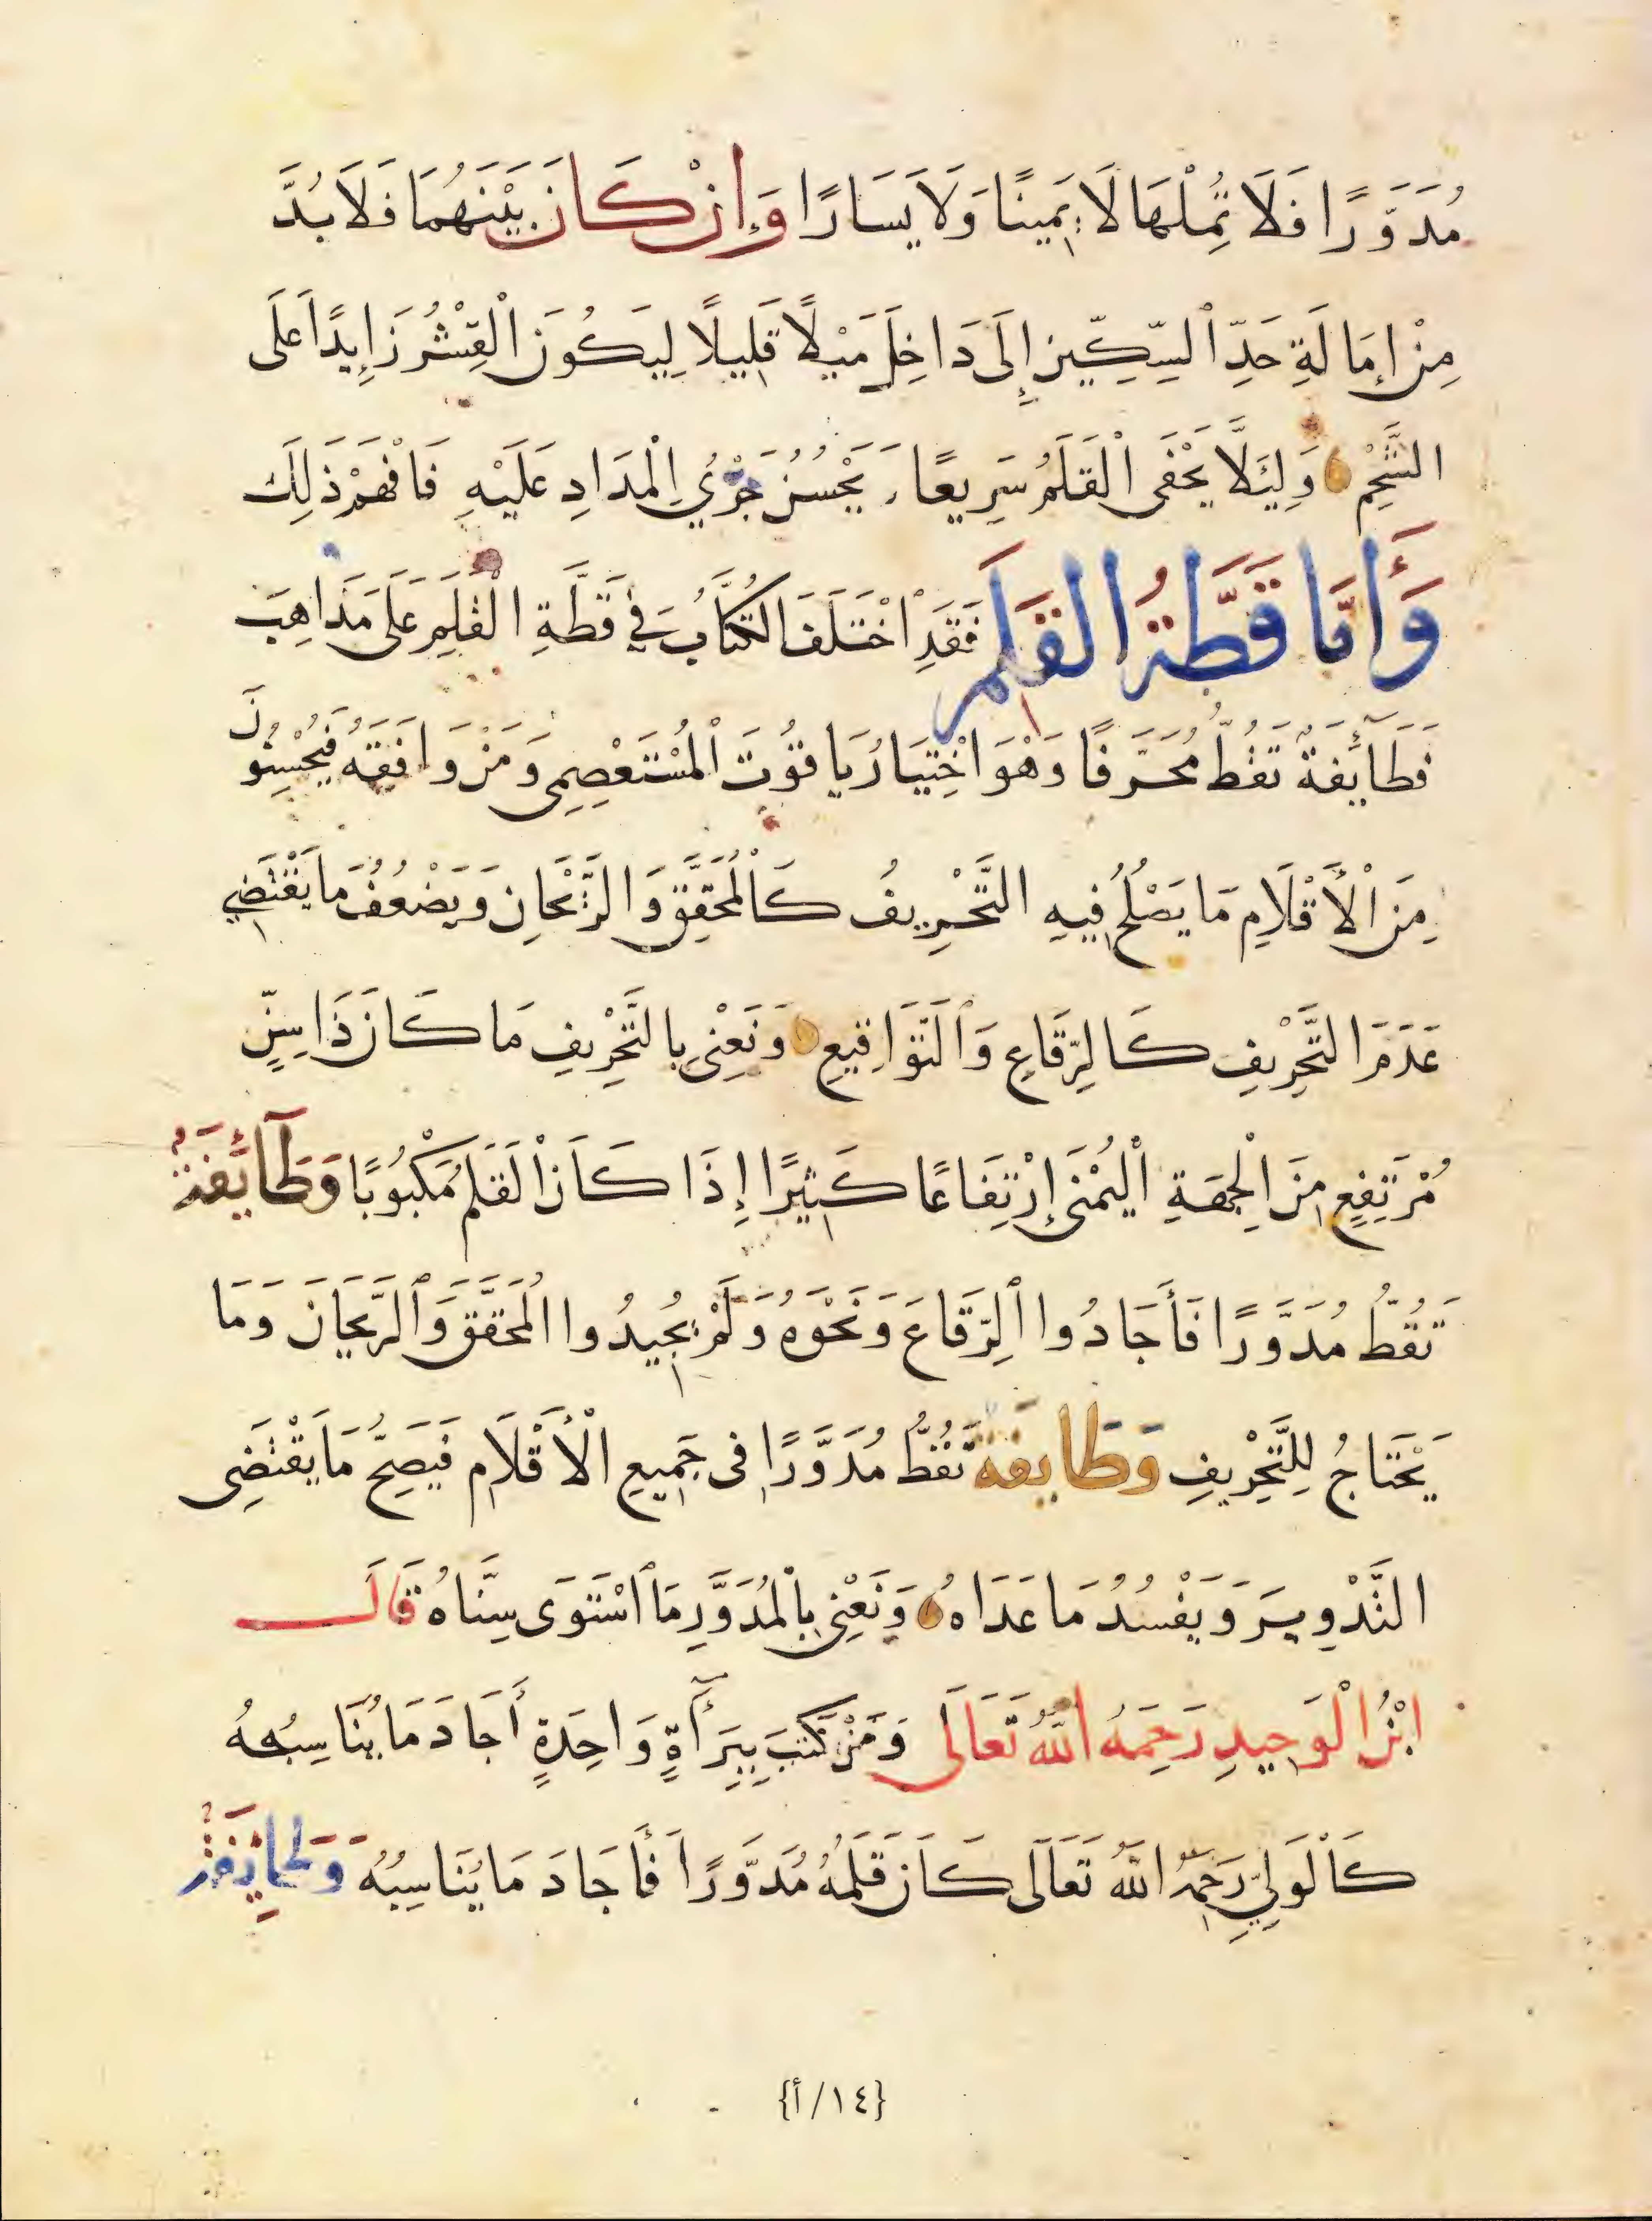 مُدَوَّرًا فَلَا تُمِلْهَا لَا يَمِينًا وَلَا يَسَارًا وَإِنْ كَانَ بَيْنَهُمَا فَلَا بُدَّ
مِنْ إِمَالَةِ حَدِّ ٱلسِّكِّينِ إِلَى دَاخِلَ مَيْلًا قَلِيلًا لِيَكُونَ ٱلْقِشْرُ زَايِدًا عَلَى
الشَّحْمِ وَلِيَلَّا يَحْفَى الْقَلَمُ سَرِيعًا وَيَحْسُنُ جَرْيُ الْمِدَادِ عَلَيْهِ فَافْهَمْ ذَلِكَ
وَأَمَّا قَطَّةُ القَلَمِ فَقَدِ ٱخْتَلَفَ الكُتَّابُ فِي قَطَّةِ الْقَلَمِ عَلَى مَذَاهِبَ
فَطَآئِفَةٌ تَقُطُّ مُحَرَّفًا وَهْوَ اخْتِيَارُ يَاقُوتَ ٱلْمُسْتَعْصِمِي وَمَنْ وَافَقَهُ فَيُحْسِنُونَ
مِنَ ٱلْأَقْلَامِ مَا يَصْلُحُ فِيهِ التَّحْرِيفُ كَالْمُحَقَّقِ وَالرَّيْحَانِ وَيَضْعُفُ مَا يَقْتَضِي
عَدَمَ التَّحْرِيفِ كَالرِّقَاعِ وَٱلتَّوَاقِيعِ وَنَعْنِي بِالتَّحْرِيفِ مَا كَانَ ذَا سِنٍّ
مُرْتَفِعٍ مِنَ الْجِهَةِ الْيُمْنَى إِرْتِفَاعًا كَثِيرًا إِذَا كَانَ ٱلْقَلَمُ مَكْبُوبًا وَطَآئِفَةٌ
تَقُطُّ مُدَوَّرًا فَأَجَادُوا ٱلرِّقَاعَ وَنَحْوَهُ وَلَمْ يُجِيدُوا الْمُحَقَّقَ وَٱلرَّيحَانَ وَمَا
يَحْتَاجُ لِلتَّحْرِيفِ وَطَايفَةٌ تَقُطُّ مُدَوَّرًا فِى جَمِيعِ الْأَقْلَامِ فَيَصِحُّ مَا يَقْتَضِى
التَّدْوِيرَ وَيَفْسُدُ مَا عَدَاهُ وَنَعْنِي بِالْمُدَوَّرِ مَا ٱسْتَوَى سِنَّاهُ قَالَ
ابْنُ الْوَحِيدِ رَحِمَهُ اللهُ تَعَالَى وَمَنْ كَتَبَ بِبَرَأَةٍ وَاحِدَةٍ أَجَادَ مَا يُنَاسِبُهُ
كَالْوَلِيِّ رَحِمَهُ اللهُ تَعَالَى كَانَ قَلَمُهُ مُدَوَّرًا فَأَجَادَ مَا يُنَاسِبُهُ وَطَايِفَةٌ
{١٤/أ}